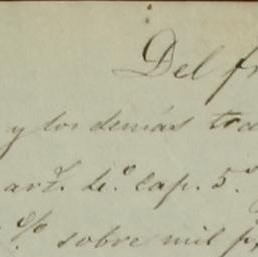 Del fr
y los demás tra
art. 4.º cap. 5.º
% sobre mil p